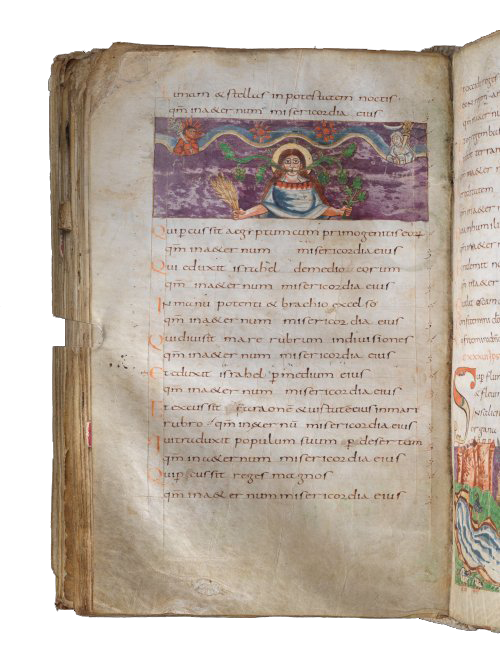 lunam & stellas in potestatem noctis
qm̄ in a&ernum misericordia eius
Qui percussit aegyptum cum primogenitis eorꝝ
qm̄ in a&ernum misericordia eius
Qui eduxit israhel de medio eorum
qm̄ in a&ernum misericordia eius
In manu potenti & brachio excelso
qm̄ in a&ernum misericordia eius
Qui diuisit mare rubrum in diuisiones
qm̄ in a&ernum misericordia eius
Et eduxit israhel p medium eius
qm̄ in a&ernum misericordia eius
Et excussit pharaonē & uirtutē eius in mari
rubro qm̄ in a&er nū misericordia eius
traduxit populum suum p desertum
qm̄ in a&ernum misericordia eius
Qui pcussit reges magnos
qm̄ in a&ernum misericordia eius